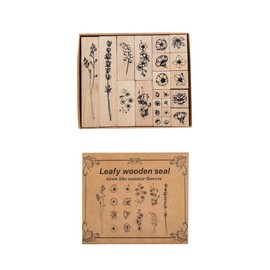 Leafy wooden seal
Grow like summer flowers